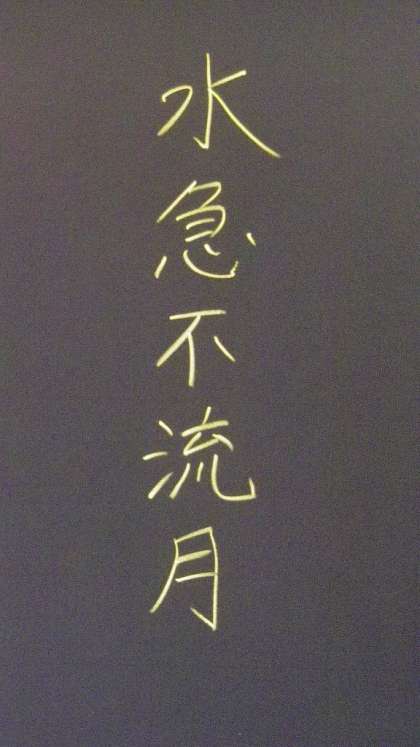 水急不流月